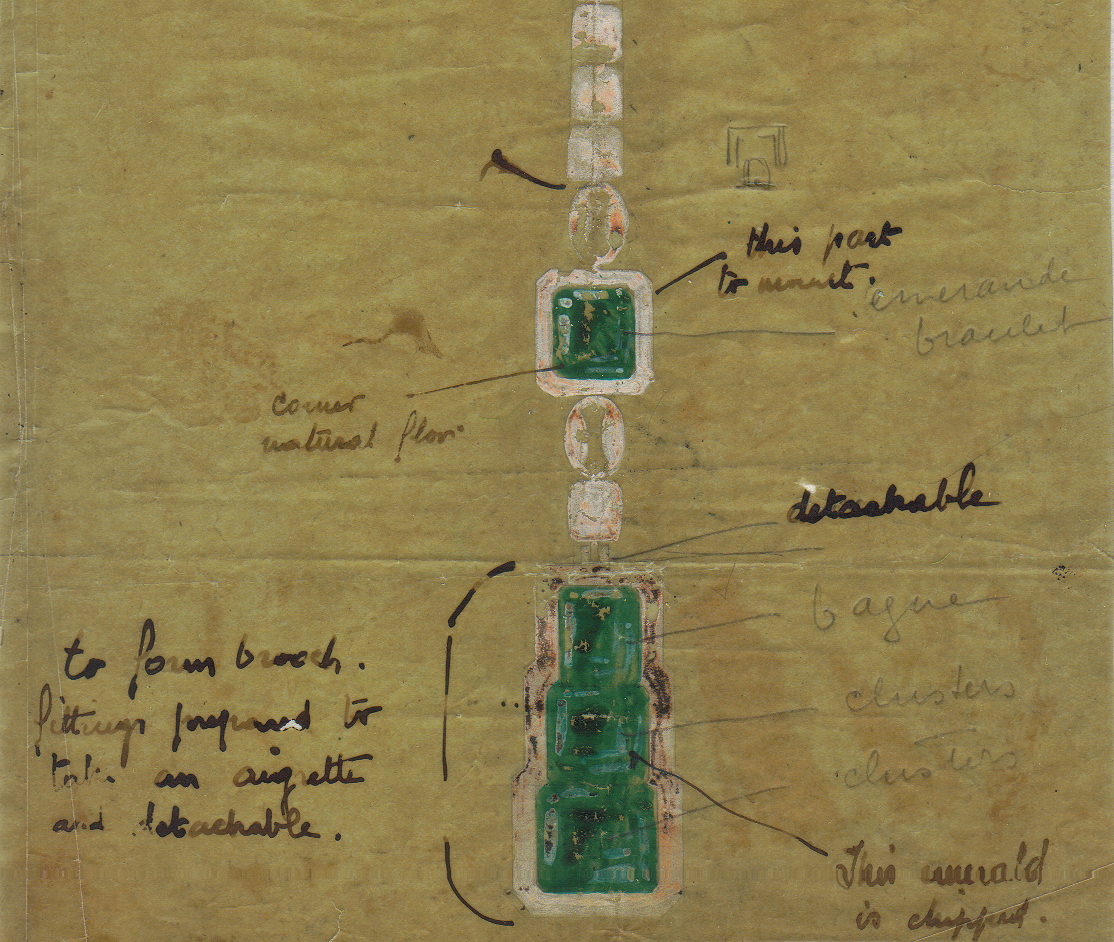 this part
to mount.
emeraude
bracelet
corner
natural flaw.
detachable
bague
to form brooch.
fittings prepared to
take an aigrette
and detachable.
clusters
clusters
This emerald
is chipped.